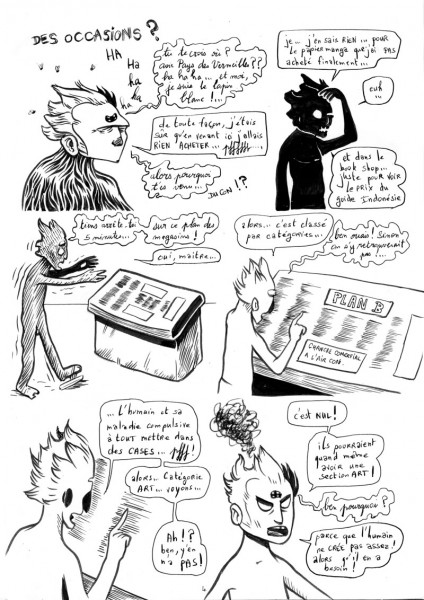 DES OCCASIONS ?
HA
HA
HA
ha
ha
tu te crois où ?
au Pays des Merveilles ??
ha ha ha... et moi,
je suis le lapin
blanc !...
de toute façon, j'étais
sûr qu'en venant ici j'allais
RIEN ACHETER...
alors pourquoi
t'es venu...
DUCON !?
je... j'en sais RIEN... pour
le papier manga que j'ai PAS
acheté finalement...
euh...
et dans le
book shop...
juste pour VOIR
le prix du
guide Indonésie
tiens arrête-toi
5 minutes...
sur ce plan des
magasins !
oui, maître...
alors... c'est classé
par catégories...
ben ouais ! Sinon
on s'y retrouverait
pas !...
PLAN B
CENTRE COMMERCIAL
A L'AIR CON.
... L'humain et sa
maladie compulsive
à TOUT mettre dans
des CASES...
alors... Catégorie
ART... voyons...
Ah !?
ben, y'en
n'a PAS !
c'est NUL !
ils pourraient
quand même
avoir une
section ART !
ben pourquoi ?
parce que l'humain
ne CRÉE pas assez !
alors qu'il en a
besoin !